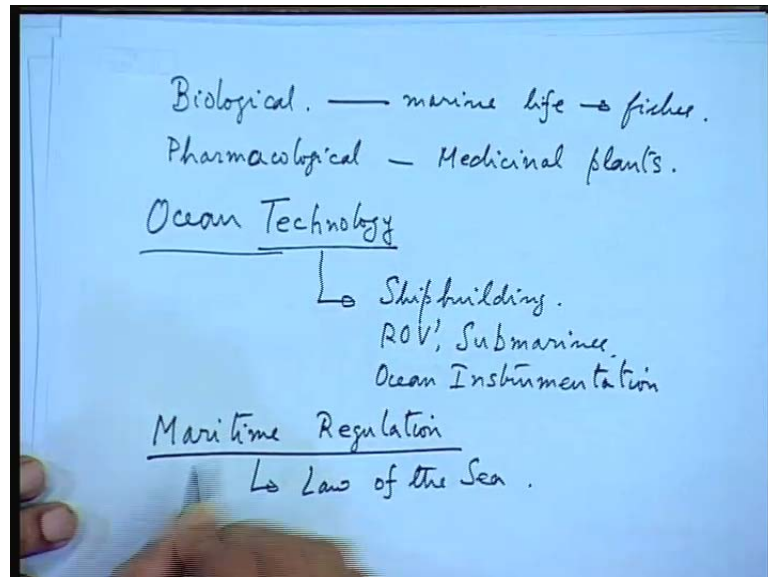 Biological. — marine life → fishes.
Pharmacological — Medicinal plants.
Ocean Technology
↳ Shipbuilding.
ROV', Submarines.
Ocean Instrumentation
Maritime Regulation
↳ Law of the Sea.